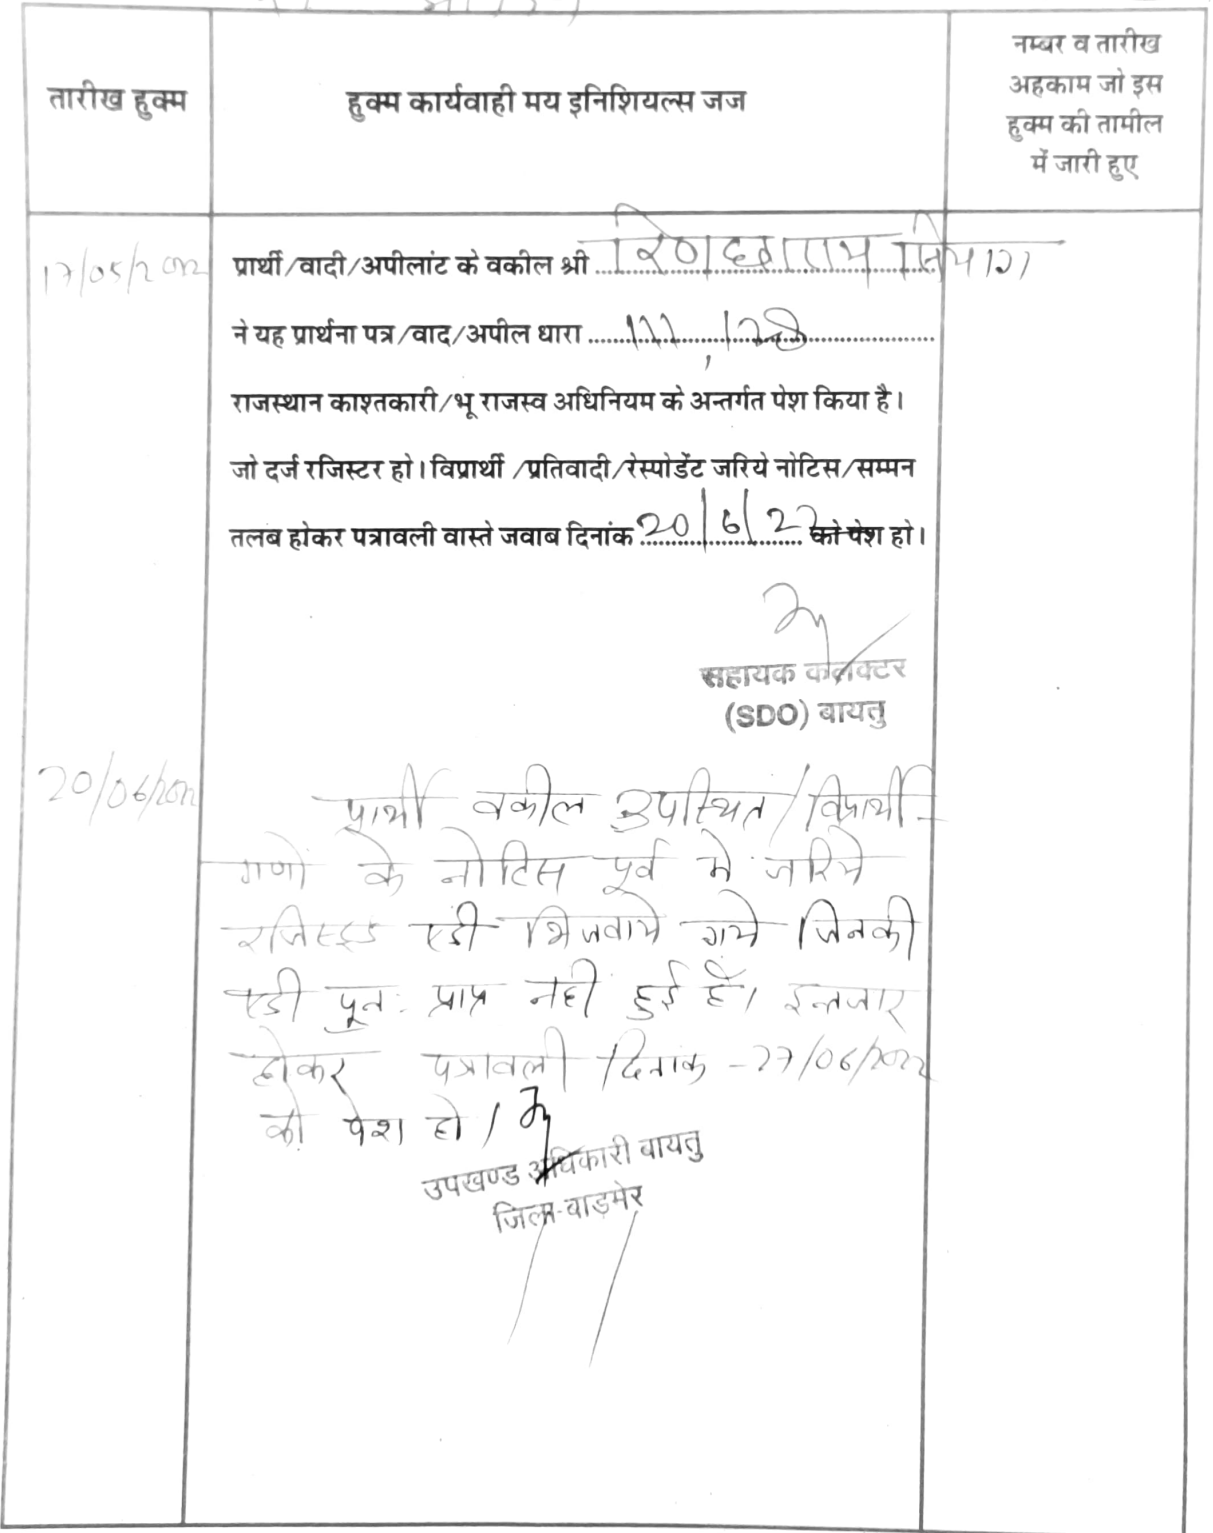 तारीख हुक्म
हुक्म कार्यवाही मय इनिशियल्स जज
नम्बर व तारीख
अहकाम जो इस
हुक्म की तामील
में जारी हुए
17/05/2022
प्रार्थी/वादी/अपीलांट के वकील श्री
ने यह प्रार्थना पत्र/वाद/अपील धारा 111, 128
राजस्थान काश्तकारी/भू राजस्व अधिनियम के अन्तर्गत पेश किया है।
जो दर्ज रजिस्टर हो। विप्रार्थी /प्रतिवादी/रेस्पोडेंट जरिये नोटिस/सम्मन
तलब होकर पत्रावली वास्ते जवाब दिनांक 20/6/22 को पेश हो।
सहायक कलक्टर
(SDO) बायतु
20/06/2022
प्रार्थी वकील उपस्थित/विप्रार्थी-
गणो के नोटिस पूर्व मे जरिये
रजिस्टर्ड एडी भिजवाये गये जिनकी
एडी पून: प्राप्त नही हुई है। इन्तजार
होकर पत्रावली दिनांक -27/06/2022
को पेश हो।
उपखण्ड अधिकारी बायतु
जिला-बाड़मेर